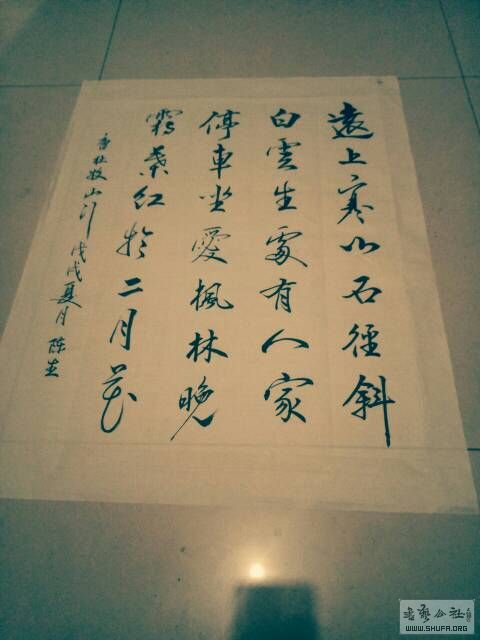 遠上寒山石徑斜
白雲生處有人家
停車坐愛楓林晚
霜葉紅於二月花
杜牧山行 戊戌夏月 陈
书艺公社
WWW.SHUFA.ORG